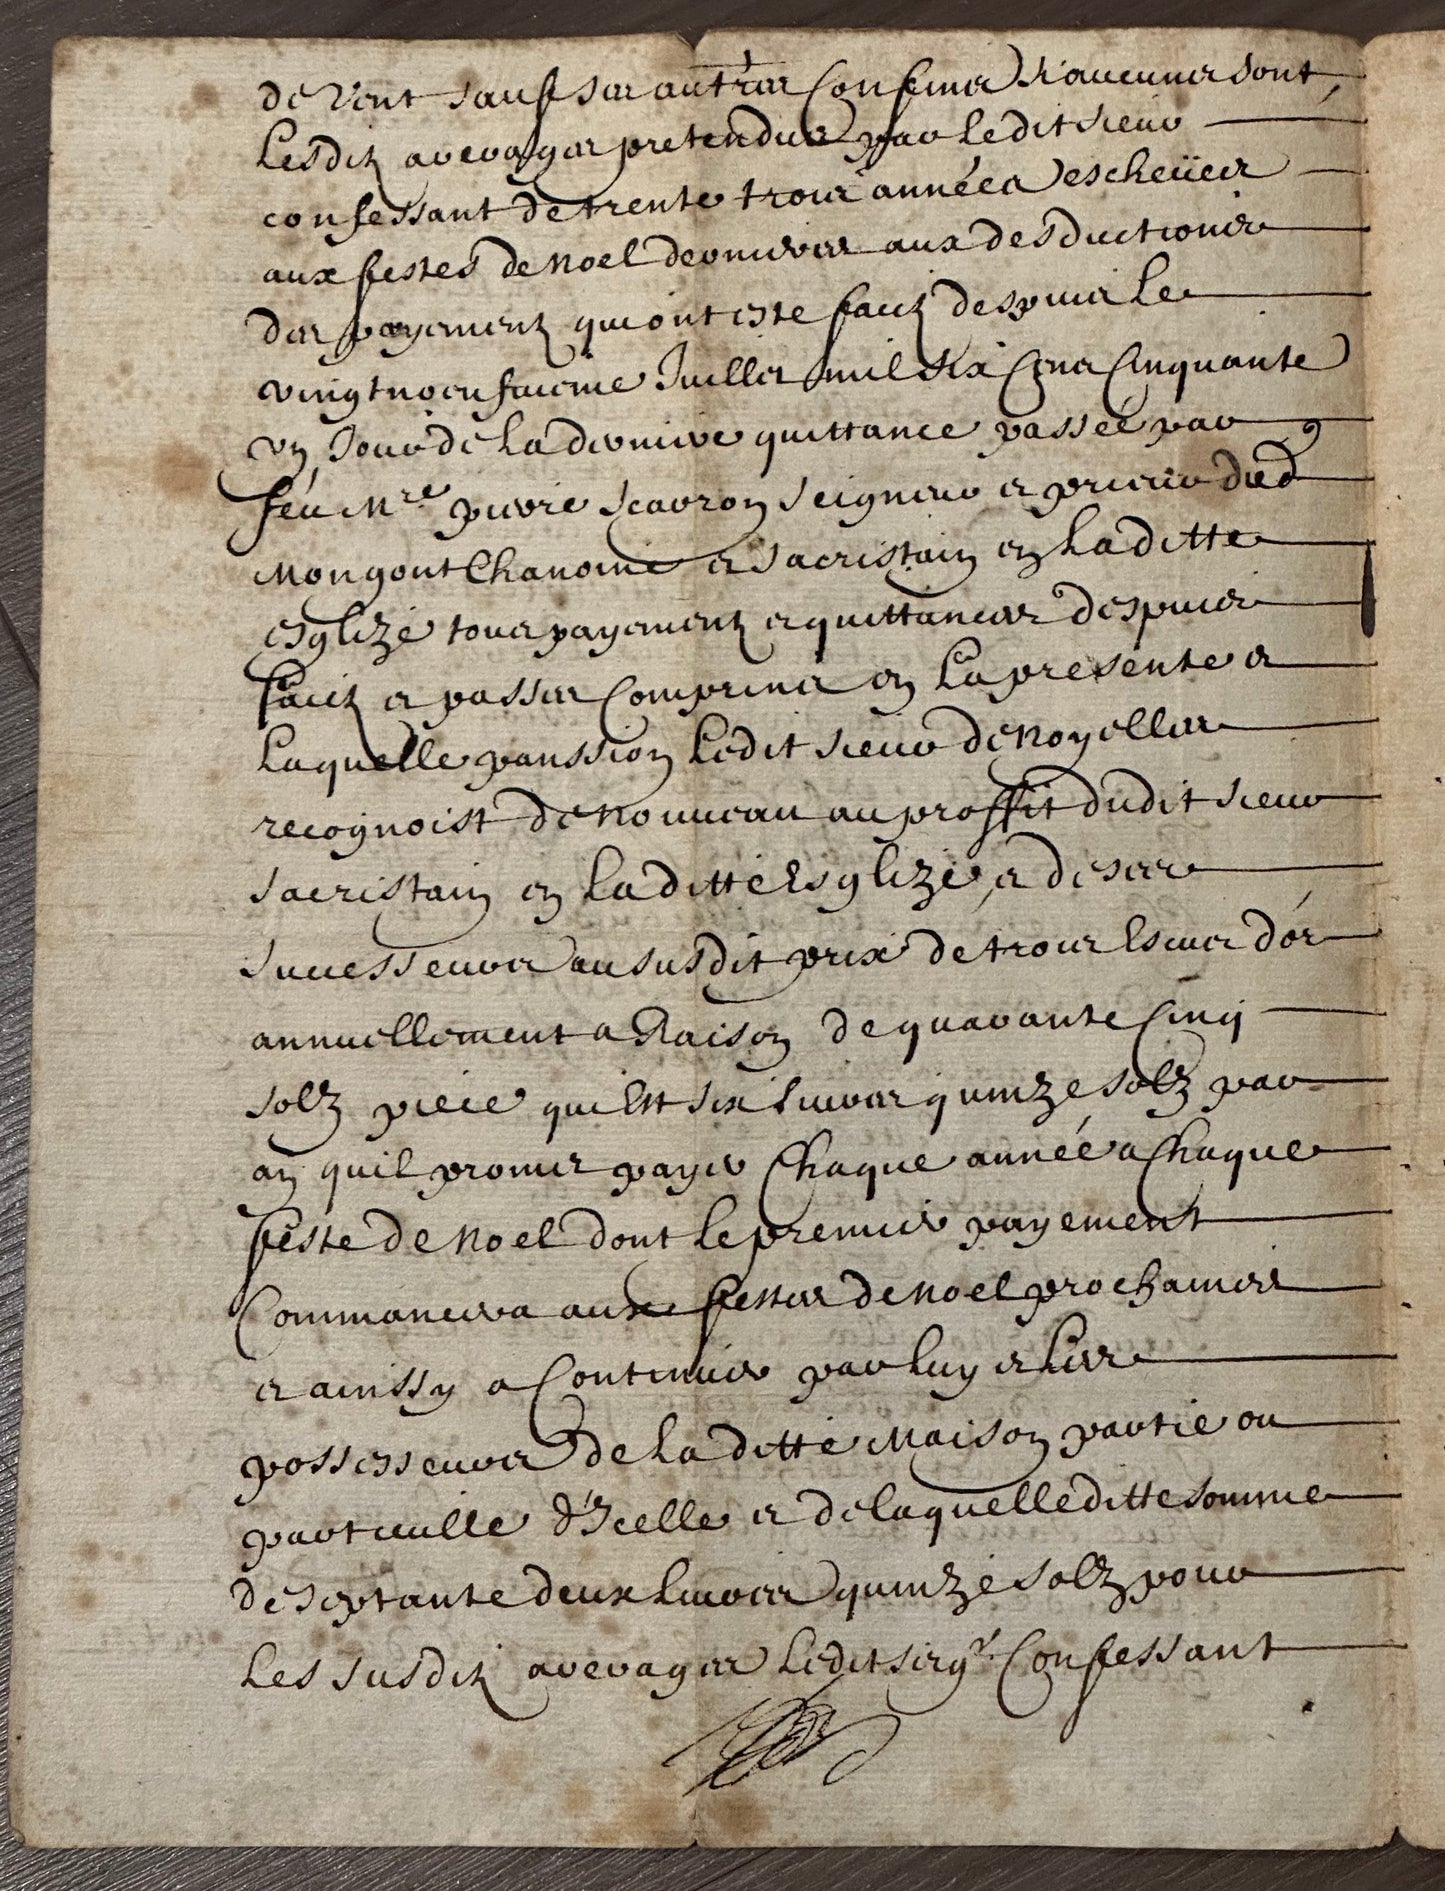 de vent sauf ses autres confins si aucuns sont,
lesditz areyrages pretendus par ledit sieur
confessant de trente trois années escheües
aux festes de noel dernieres aux desductions
des payementz qui ont este faitz despuis le
vingt noeufuieme Juillet mil six cens cinquante
un Jour de la derniere quittance passée par
feu Mre pierre scarron seigneur et prieur dud
Mongont Chanoine et sacristain en la ditte
esglize tous payementz et quittances despuis
faitz et passes comprins en la presente et
laquelle panssion ledit sieur de Noyelles
recognoist de nouueau au proffit dudit sieur
sacristain en la ditte Esglize, et de ses
successeurs au susdit prix de trois Escus d'or
annuellement a Raison de quarante cinq
solz piece qui Est six liures quinze solz par
an quil promet payer chaque année a chaque
feste de Noel dont le premier payement
commancera aux festes de Noel prochaines
et ainssy a continuer par luy et lesd
possesseurs de la ditte Maison partie ou
partieulle d'Icelle et de laquelle ditte somme
de septante deux liures quinze solz pour
les susditz areyrages ledit sieur Confessant